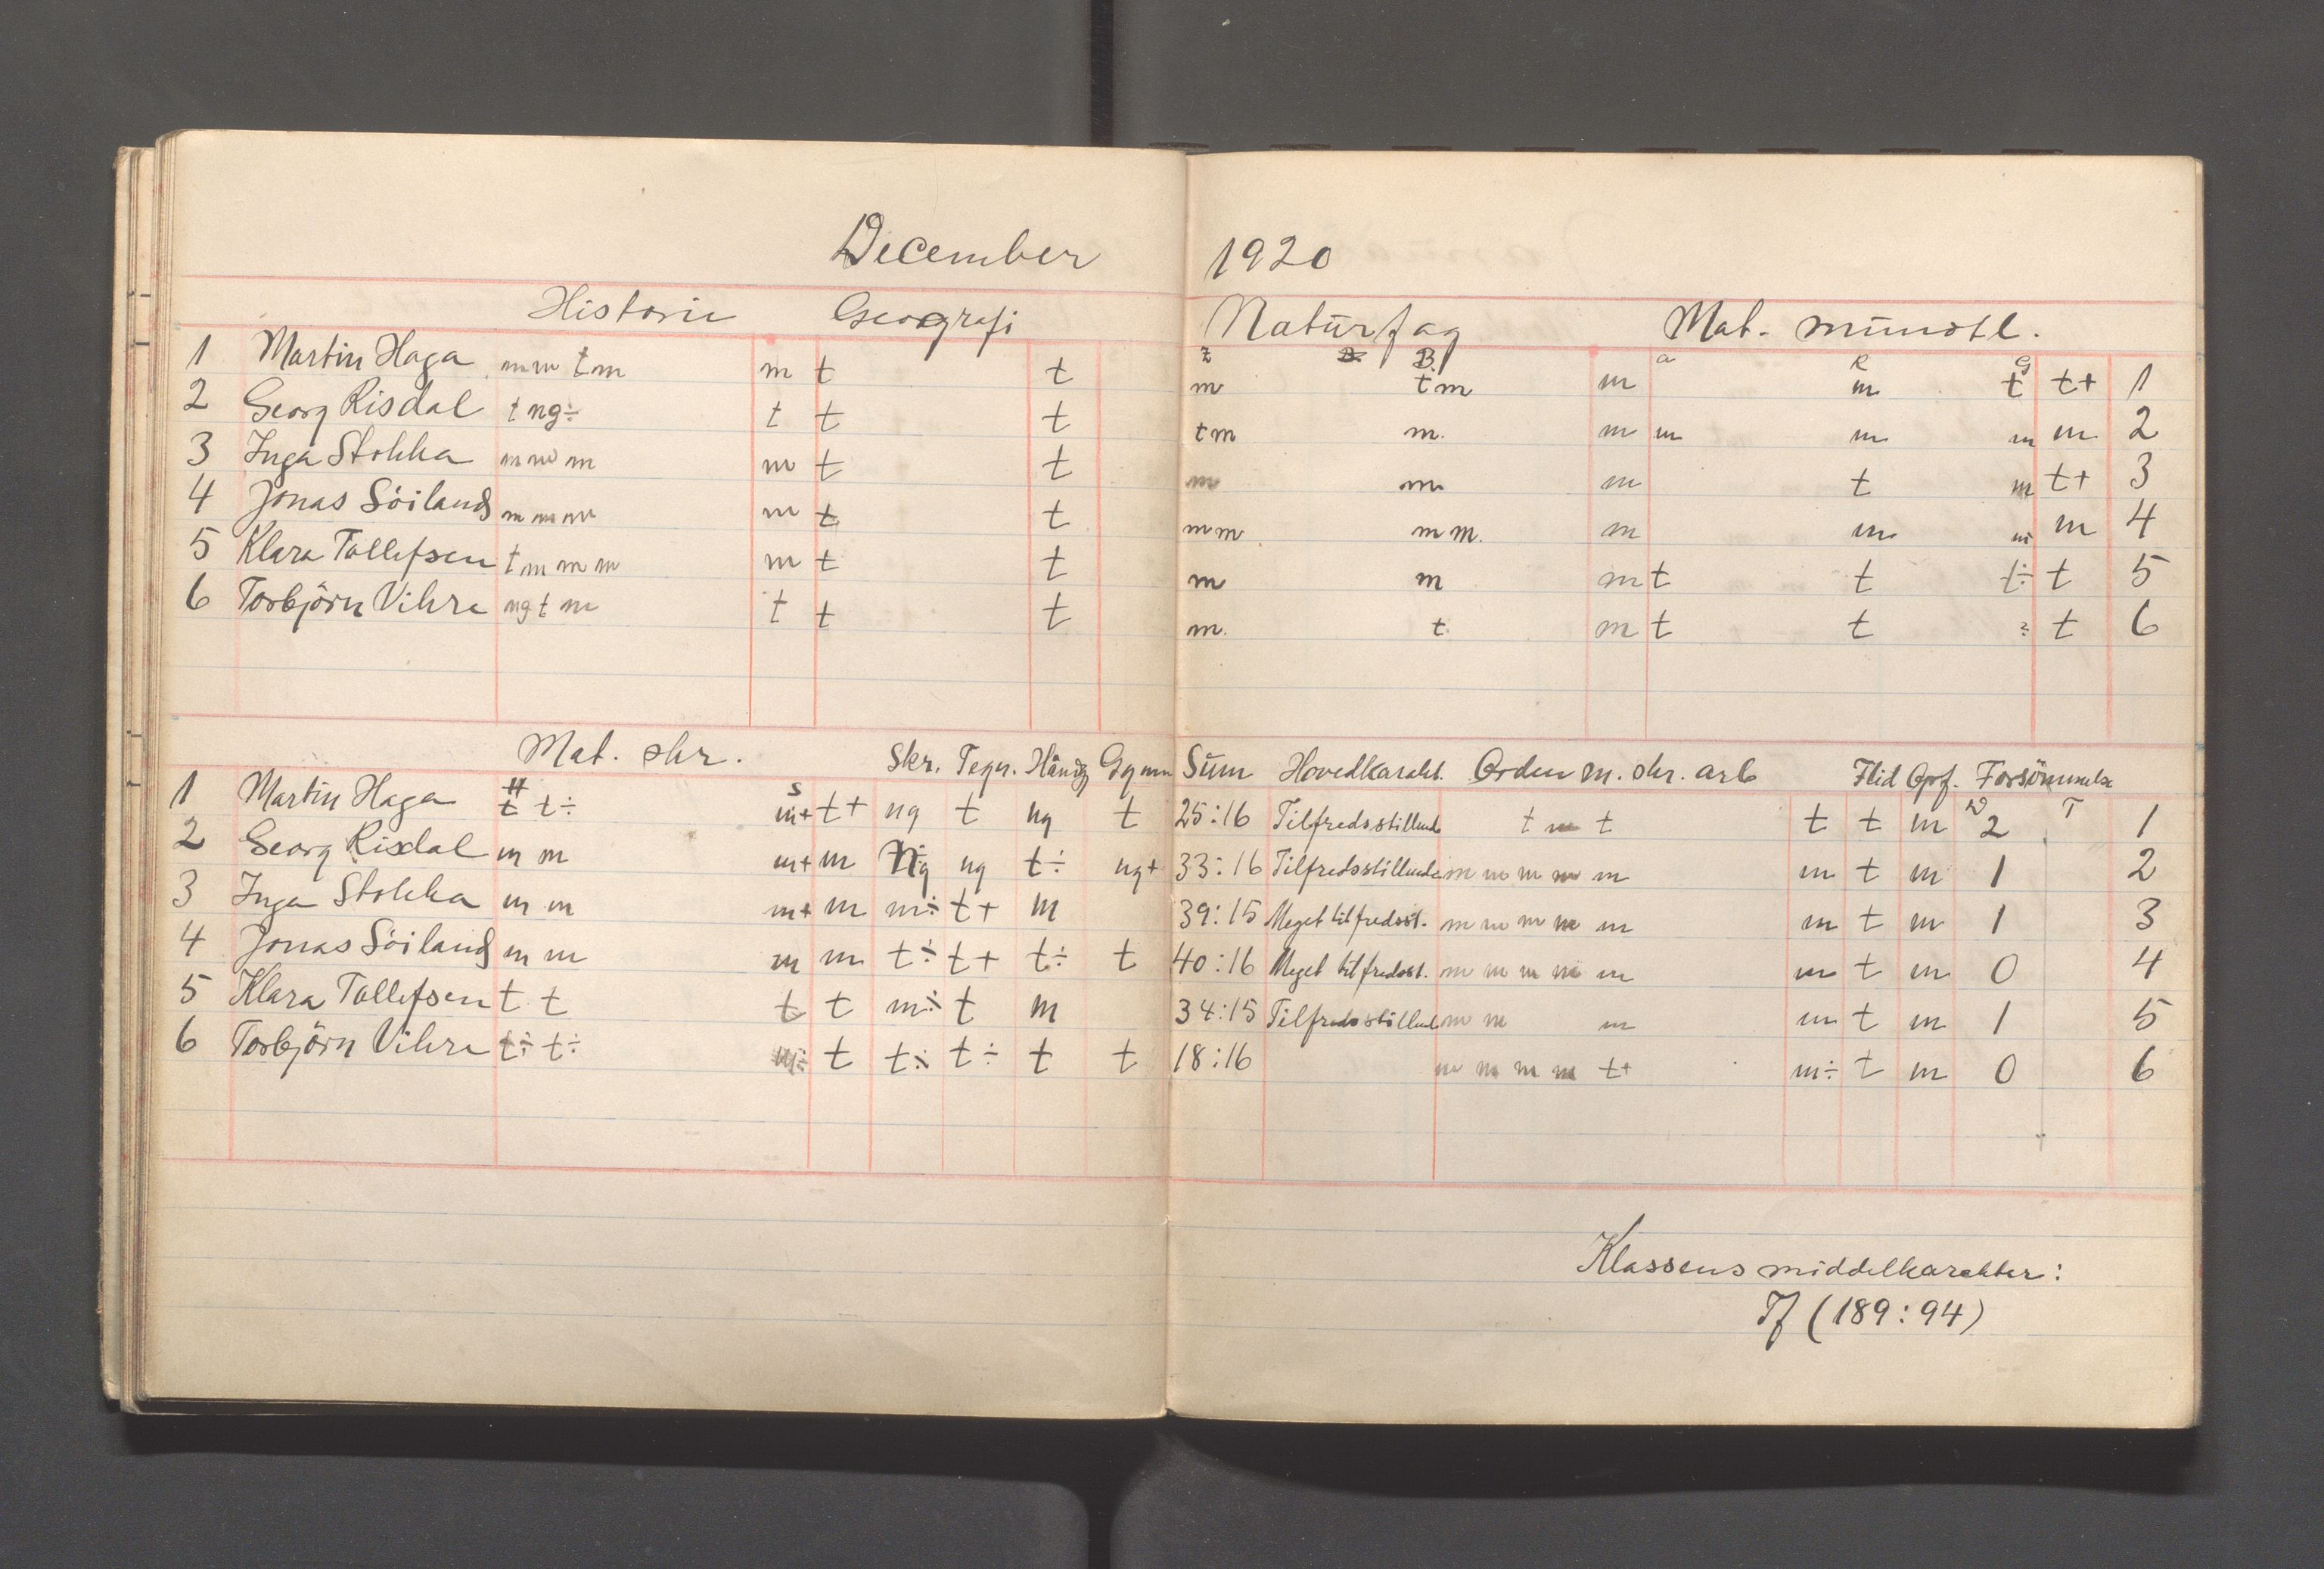 December 1920
Historie Geografi Naturfag Mat. mundtl.
Z B. B. a R G
1 Martin Haga m m t m m t t m t m m m t t+ 1
2 Georg Risdal t ng÷ t t t t m m. m m m m m 2
3 Inga Stokka m m m m t t m m m t m t+ 3
4 Jonas Söiland m m m m t t m m m m. m m m m 4
5 Klara Tollefsen t m m m m t t m m m t t t÷ t 5
6 Torbjörn Vikre ng t m t t t m. t. m t t t 6
Mat. skr. Skr. Tegn. Håndg Gymn Sum Hovedkarakt. Orden m. skr. arb Flid Opf. Forsömmelse
H S D T
1 Martin Haga t t÷ m+ t+ ng t ng t 25:16 Tilfredsstillende t m t t t m 2 1
2 Georg Risdal m m m+ m Ng ng t÷ ng+ 33:16 Tilfredsstillende m m m m m m t m 1 2
3 Inga Stokka m m m+ m m÷ t+ m 39:15 Meget tilfredsst. m m m m m m t m 1 3
4 Jonas Söiland m m m m t÷ t+ t÷ t 40:16 Meget tilfredsst. m m m m m m t m 0 4
5 Klara Tollefsen t t t t m÷ t m 34:15 Tilfredsstillende m m m m t m 1 5
6 Torbjörn Vikre t÷ t÷ m÷ t t÷ t÷ t t 18:16 m m m m t+ m÷ t m 0 6
Klassens middelkarakter:
Tf (189:94)